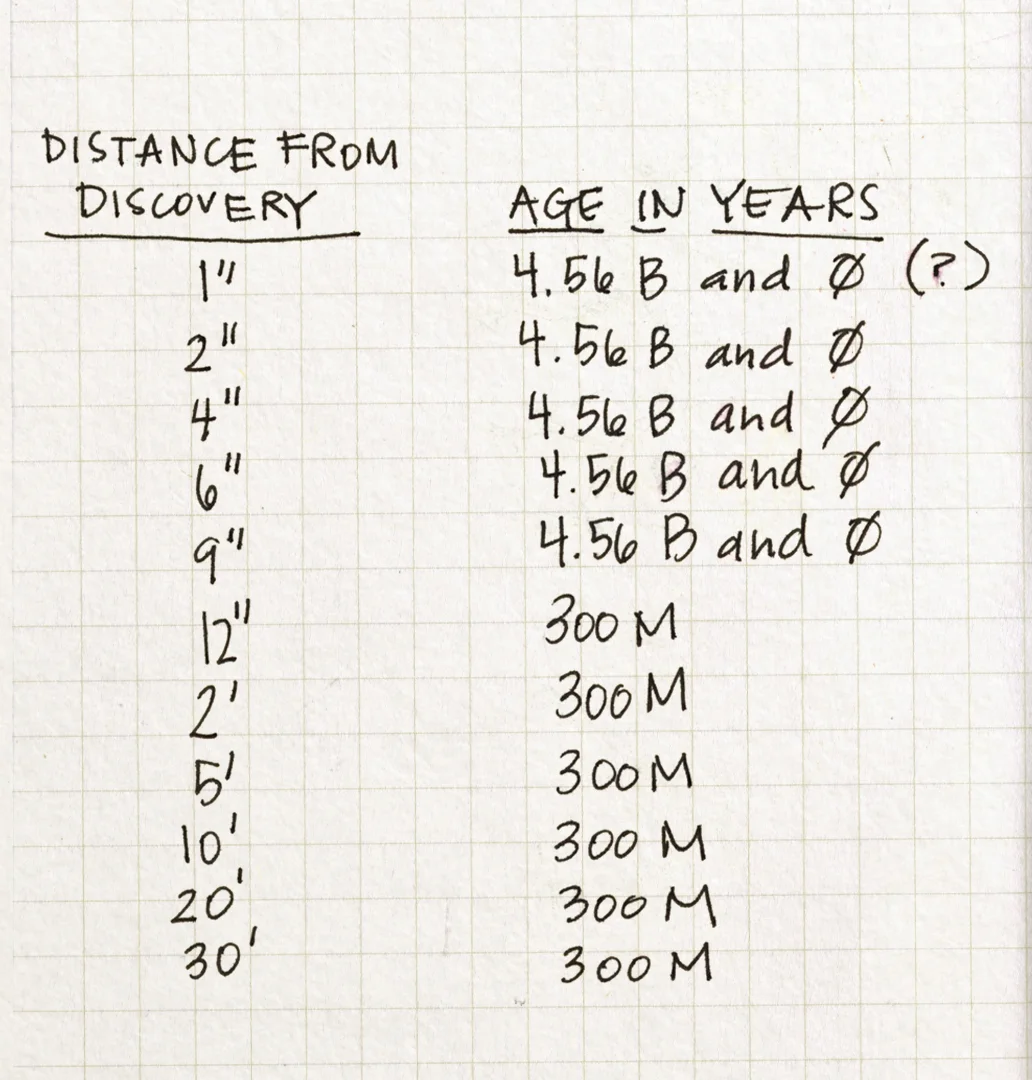 DISTANCE FROM
DISCOVERY AGE IN YEARS
1" 4.56 B and Ø (?)
2" 4.56 B and Ø
4" 4.56 B and Ø
6" 4.56 B and Ø
9" 4.56 B and Ø
12" 300 M
2' 300 M
5' 300 M
10' 300 M
20' 300 M
30' 300 M